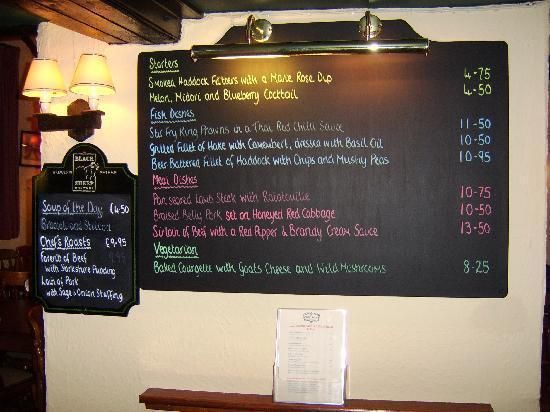 Starters
Smoked Haddock Fritters with a Marie Rose Dip 4-75
Melon, Midori and Blueberry Cocktail 4-50
Fish Dishes
Stir Fry King Prawns in a Thai Red Chilli Sauce 11-50
Grilled Fillet of Hake with Camembert, dressed with Basil Oil 10-50
Beer Battered Fillet of Haddock with Chips and Mushy Peas 10-95
Meat Dishes
Pan seared Lamb Steak with Ratatouille 10-75
Braised Belly Pork set on Honeyed Red Cabbage 10-50
Sirloin of Beef with a Red Pepper & Brandy Cream Sauce 13-50
Vegetarian
Baked Courgette with Goats Cheese and Wild Mushrooms 8-25
BLACK
SHEEP
BREWERY
Soup of the Day £4.50
Broccoli and Stilton
Chef's Roasts £9.95
of Beef 9.95
with Yorkshire Pudding
Loin of Pork
with Sage & Onion Stuffing